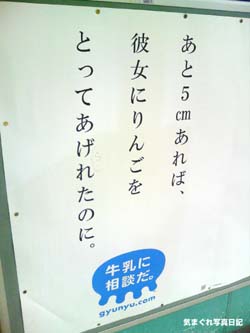 あと5cmあれば、
彼女にりんごを
とってあげれたのに。
牛乳に
相談だ。
gyunyu.com
気まぐれ写真日記